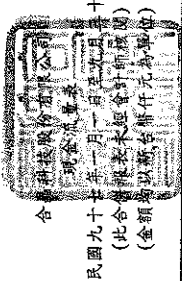 合科技股份有限公司
現金流量表
民國九十年一月一日至九月三十
(此合併報表未經會計師核閱)
(金額均以新台幣仟元為單位)